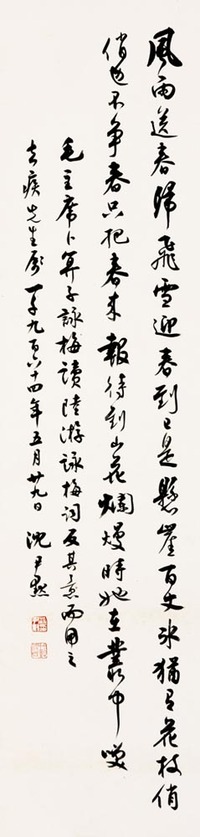 風雨送春歸飛雪迎春到已是懸崖百丈冰猶有花枝俏
俏也不争春只把春来報待到山花爛熳時她在叢中咲
毛主席卜算子詠梅讀陸游詠梅詞反其意而用之
去疾先生屬一千九百六十四年五月廿九日 沈尹默